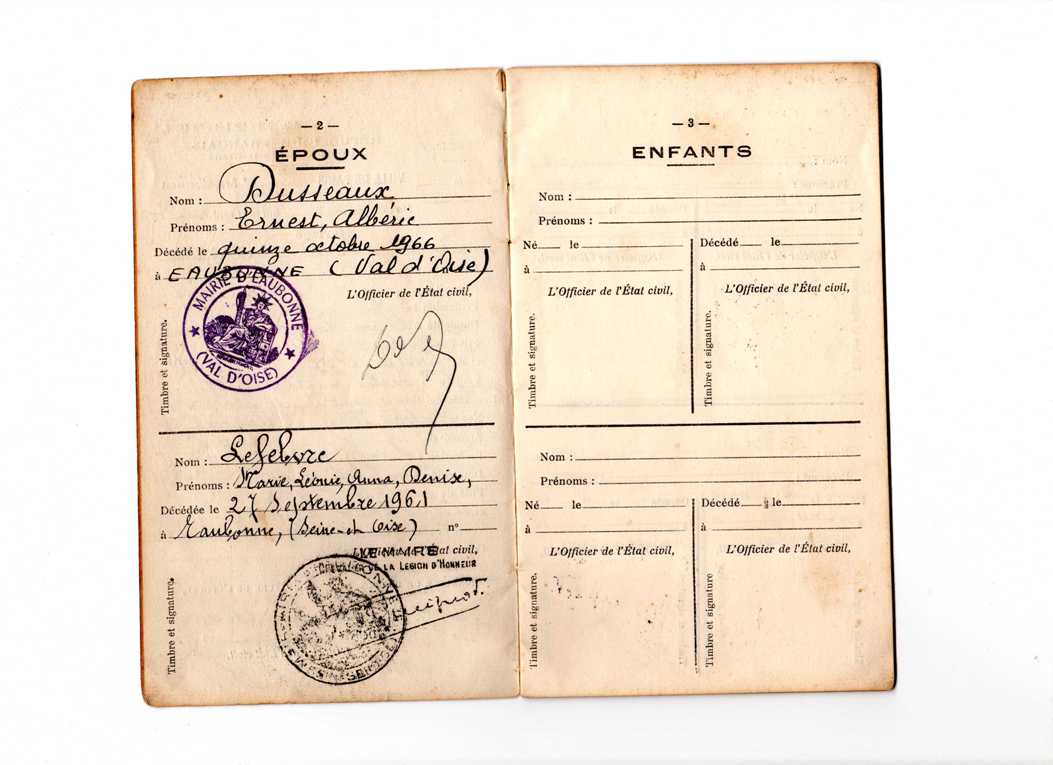 — 2 —
ÉPOUX
Nom : Dusseaux
Prénoms : Ernest, Albéric
Décédé le quinze octobre 1966
à EAUBONNE (Val d'Oise)
L'Officier de l'État civil,
MAIRIE D'EAUBONNE
(VAL D'OISE)
Timbre et signature.
Nom : Lefebvre
Prénoms : Marie, Léonie, Anna, Denise,
Décédée le 27 Septembre 1961
à Eaubonne, (Seine-et Oise) n°
L'Officier de l'État civil,
LE MAIRE
DE LA LÉGION D'HONNEUR
Timbre et signature.
— 3 —
ENFANTS
Nom :
Prénoms :
Né le
à
L'Officier de l'État civil,
Timbre et signature.
Décédé le
à
L'Officier de l'État civil,
Timbre et signature.
Nom :
Prénoms :
Né le
à
L'Officier de l'État civil,
Timbre et signature.
Décédé le
à
L'Officier de l'État civil,
Timbre et signature.